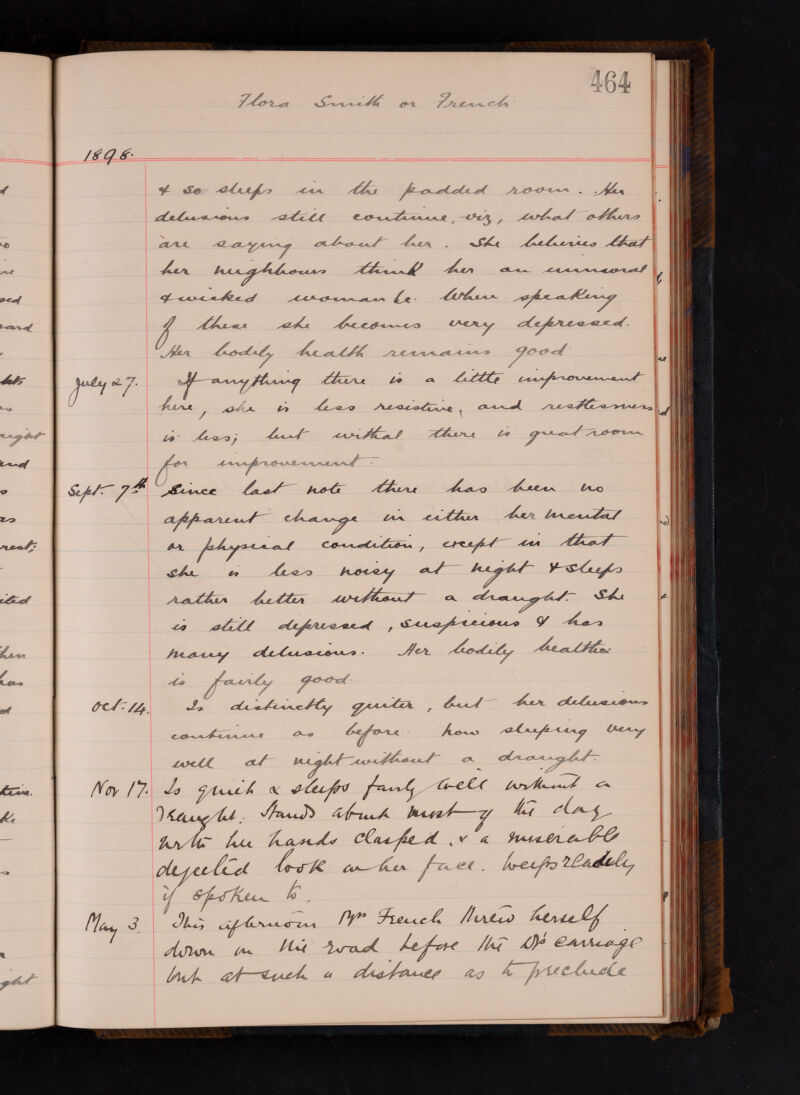 464
Flora Smith or French
1898.
& so sleeps in the padded room. Her
delusions still continue, viz, what others
are saying about her. She believes that
her neighbours think her an immoral
& wicked woman &c. When speaking
of these she becomes very depressed.
Her bodily health remains good.
July 27. If anything there is a little improvement
here, she is less resistive, and restlessness
is less; but withal there is great room
for improvement.
Sept. 7th Since last note there has been no
apparent change in either her mental
or physical condition, except in that
she is less noisy at night & sleeps
rather better without a draught. She
is still depressed, suspicious & has
many delusions. Her bodily health
is fairly good.
Oct. 14. Is distinctly quieter, but her delusions
continue as before. Now sleeping very
well at night without a draught.
Nov 17. Is quiet & sleeps fairly well without a
draught. Stands about most of the day
with her hands clasped, & a miserable
dejected look on her face. Weeps readily
if spoken to.
May 3. This afternoon Mrs French threw herself
down on the road before the Drs carriage
but at such a distance as to preclude